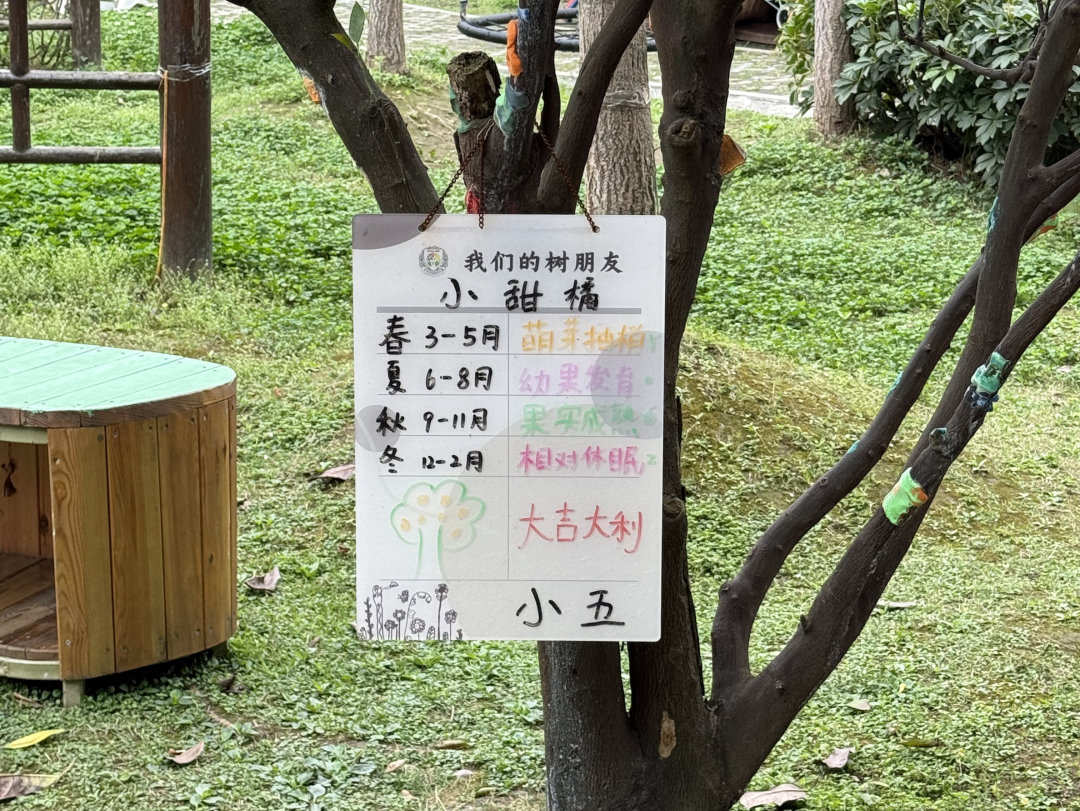 我们的树朋友
小甜橘
春 3-5月 萌芽抽梢
夏 6-8月 幼果发育
秋 9-11月 果实成熟
冬 12-2月 相对休眠
大吉大利
小五